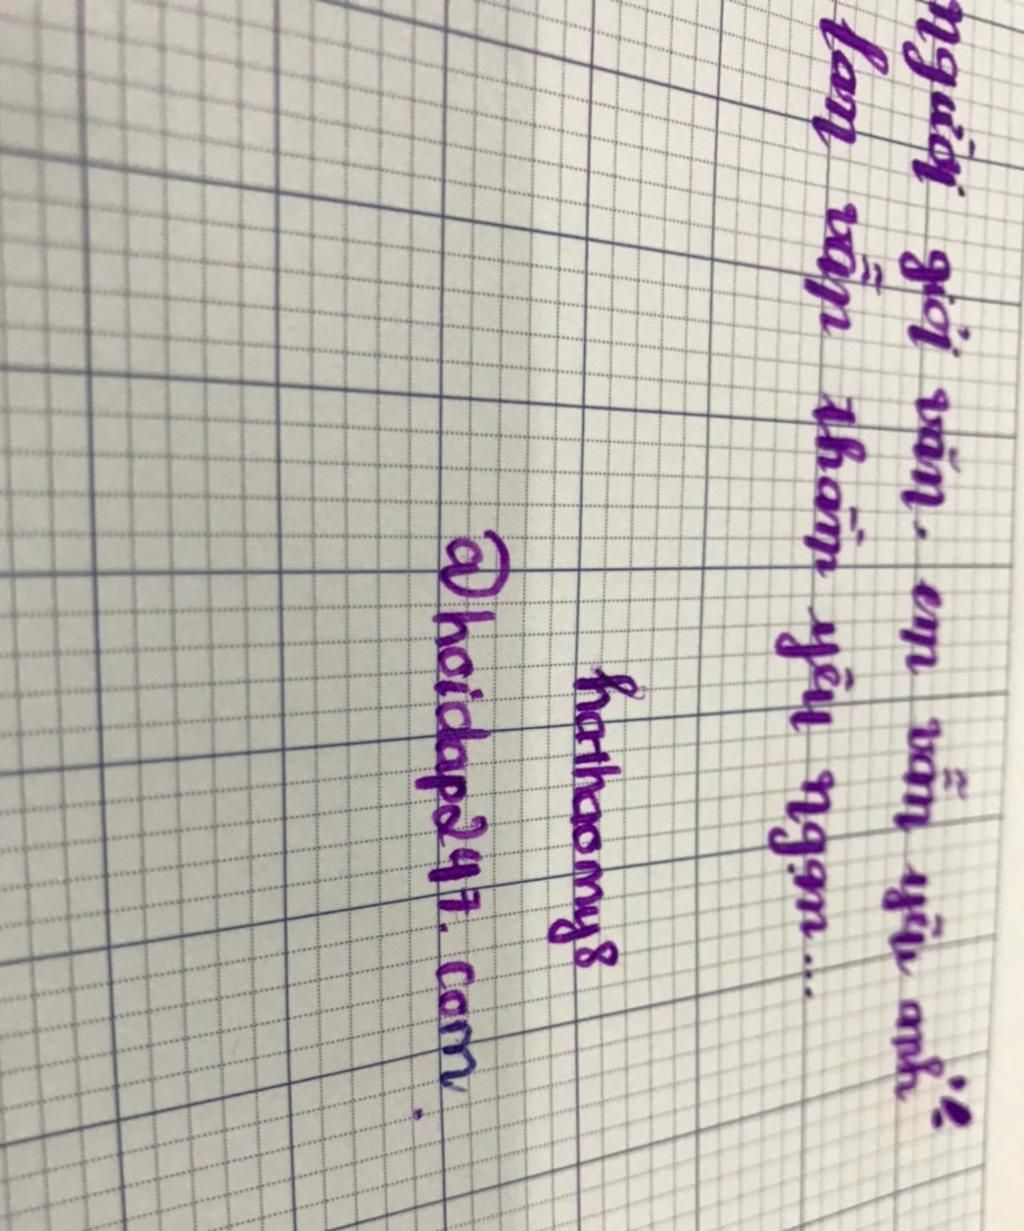 người giỏi văn. em vẫn yêu anh
Lam vẫn thầm yêu ngạn....
hathaomy8
@hoidap247.com.